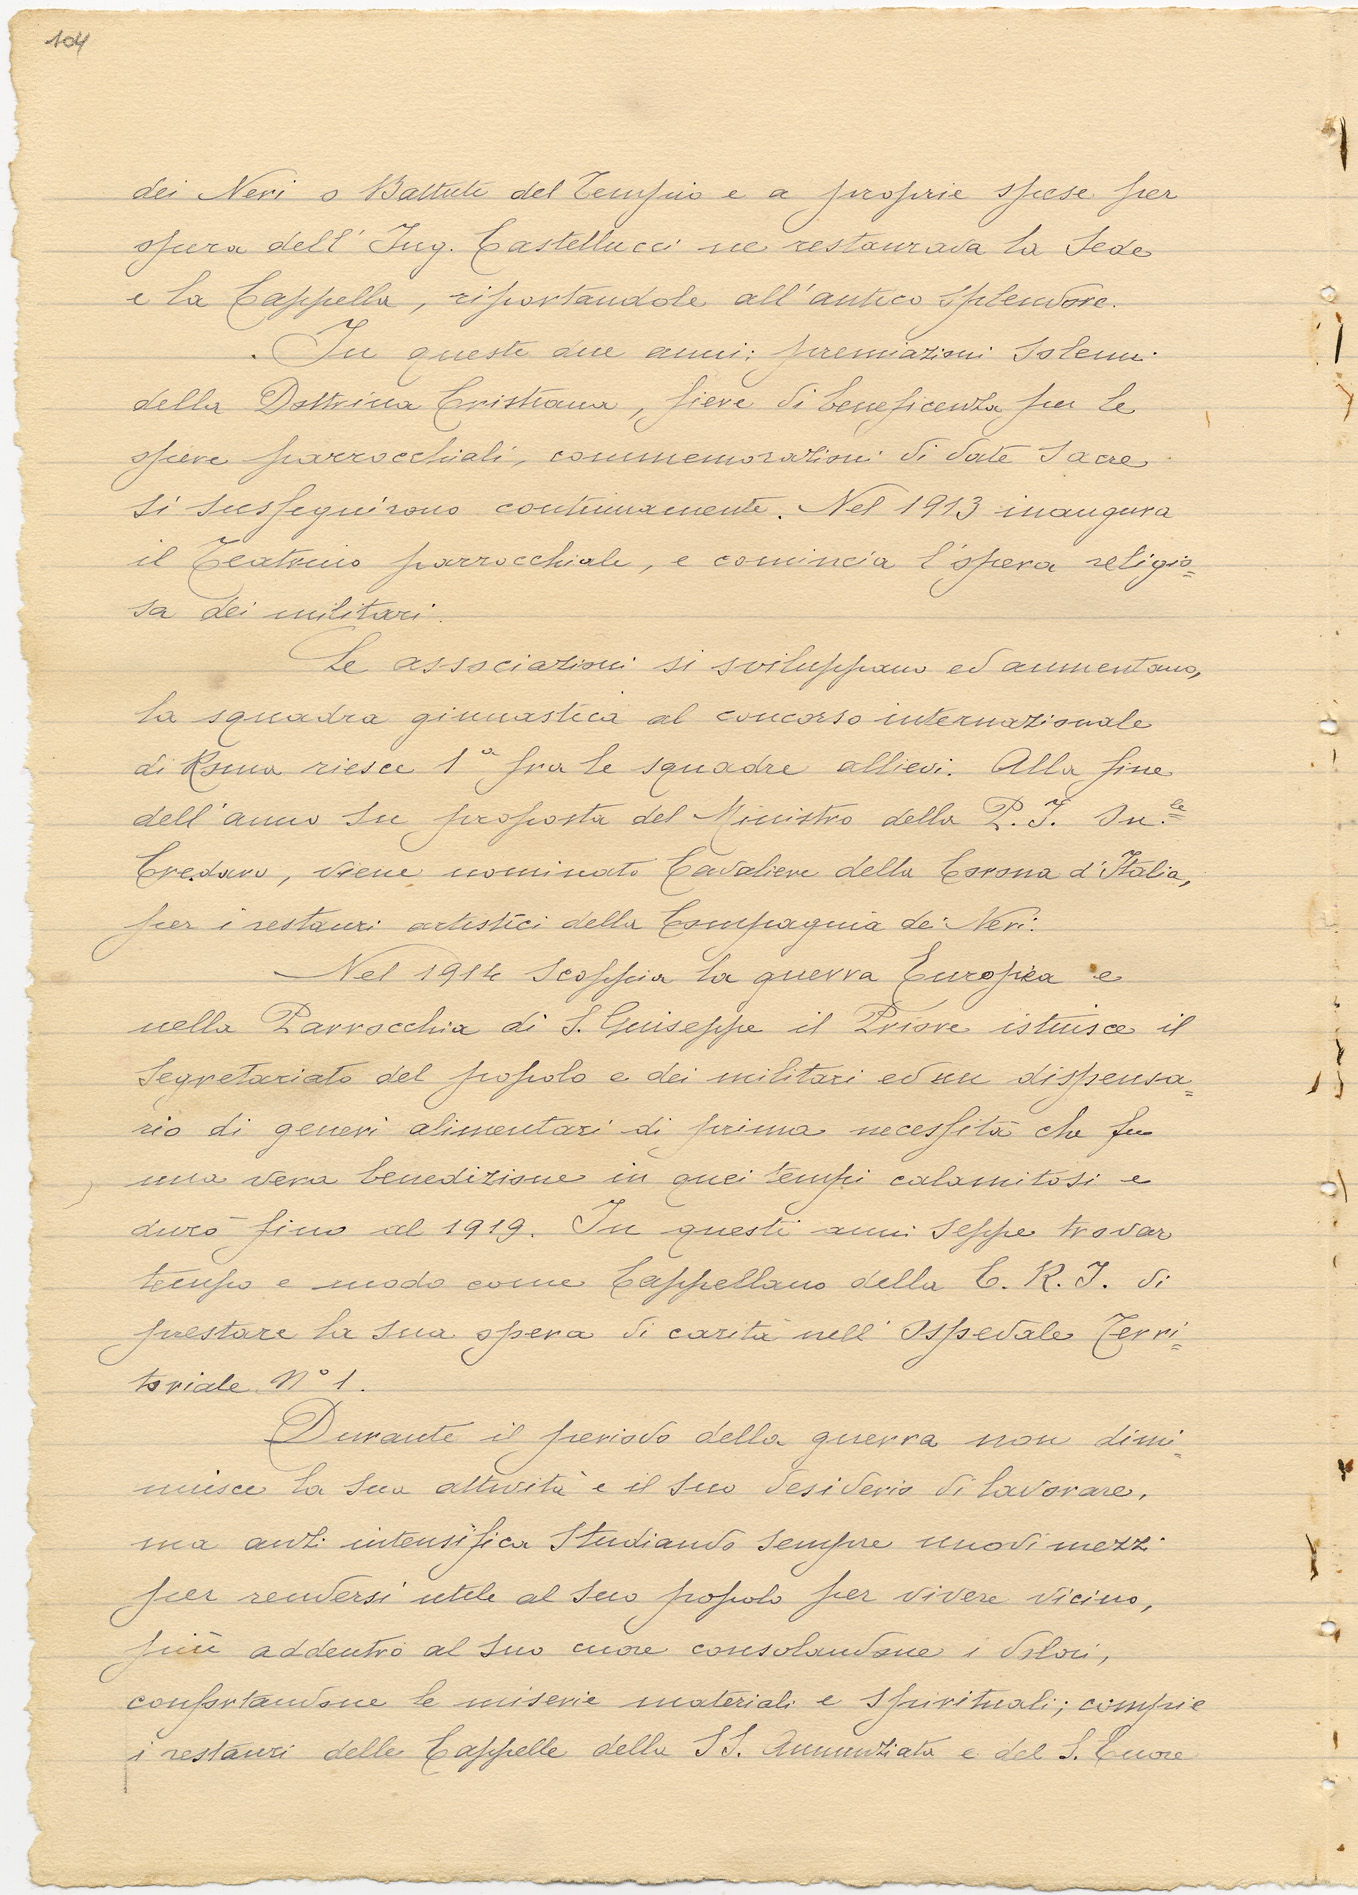 104
dei Neri o Battuti del Tempio e a proprie spese per
opera dell' Ing. Castellucci ne restaurava la Sede
e la Cappella, riportandole all'antico splendore.
In questi due anni: premiazioni Solenni
della Dottrina Cristiana, fiere di beneficenza per le
opere parrocchiali, commemorazioni di date Sacre
si susseguirono continuamente. Nel 1913 inaugura
il Teatrino parrocchiale, e comincia l'opera religio=
sa dei militari.
Le associazioni si sviluppano ed aumentano,
la squadra ginnastica al concorso internazionale
di Roma riesce 1ª fra le squadre allievi. Alla fine
dell'anno su proposta del Ministro della P. I.
Credaro, viene nominato Cavaliere della Corona d'Italia,
per i restauri artistici della Compagnia dei Neri.
Nel 1914 scoppia la guerra Europea e
nella Parrocchia di S. Giuseppe il Priore istuisce il
Segretariato del popolo e dei militari ed un dispensa=
rio di generi alimentari di prima necessità che fu
una vera benedizione in quei tempi calamitosi e
durò fino al 1919. In questi anni seppe trovar
tempo e modo come Cappellano della C. R. I. di
prestare la sua opera di carità nell'Ospedale Terri=
toriale N° 1.
Durante il periodo della guerra non dimi=
nuisce la sua attività e il suo desiderio di lavorare,
ma anzi intensifica studiando sempre nuovi mezzi
per rendersi utile al suo popolo per vivere vicino,
più addentro al suo cuore consolandone i dolori,
confortandone le miserie materiali e spirituali; compie
i restauri delle Cappelle della SS. Annunziata e del S. Cuore